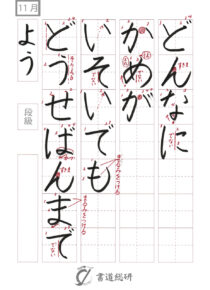 11月
どんなに
かめが
いそいでも
どうせばんまで
よう
段級
書道総研